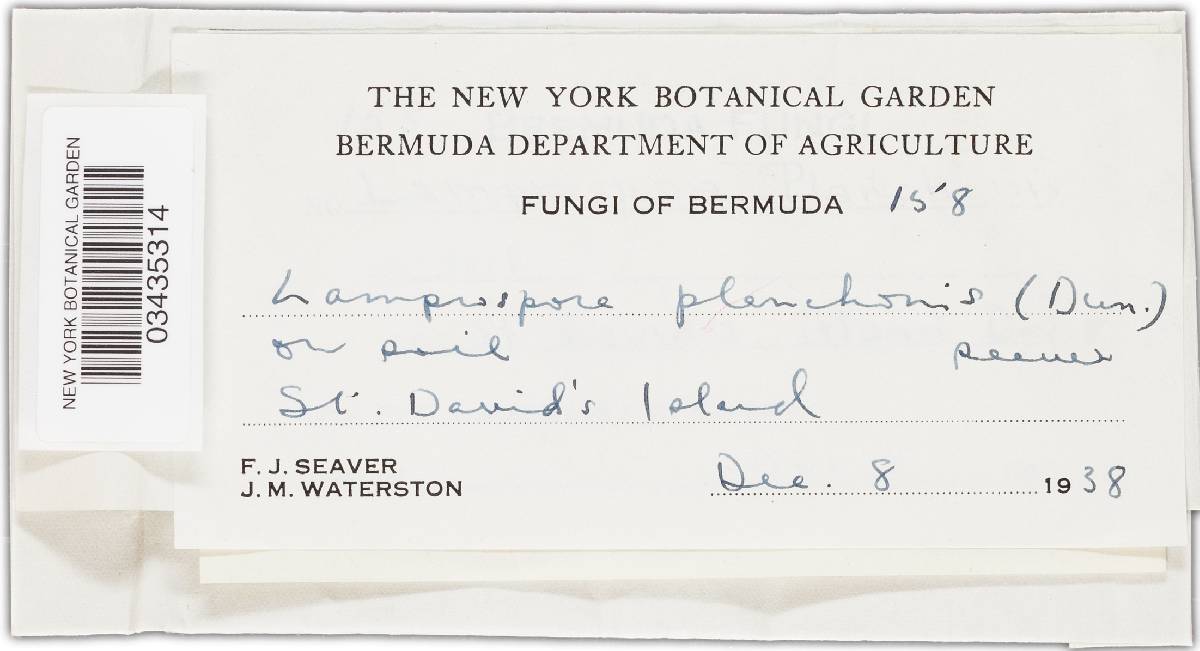 THE NEW YORK BOTANICAL GARDEN
BERMUDA DEPARTMENT OF AGRICULTURE
FUNGI OF BERMUDA 158
Lamprospora planchonis (Dun.)
on soil Seaver
St. David's Island
F. J. SEAVER
J. M. WATERSTON
Dec. 8 1938
NEW YORK BOTANICAL GARDEN
03435314